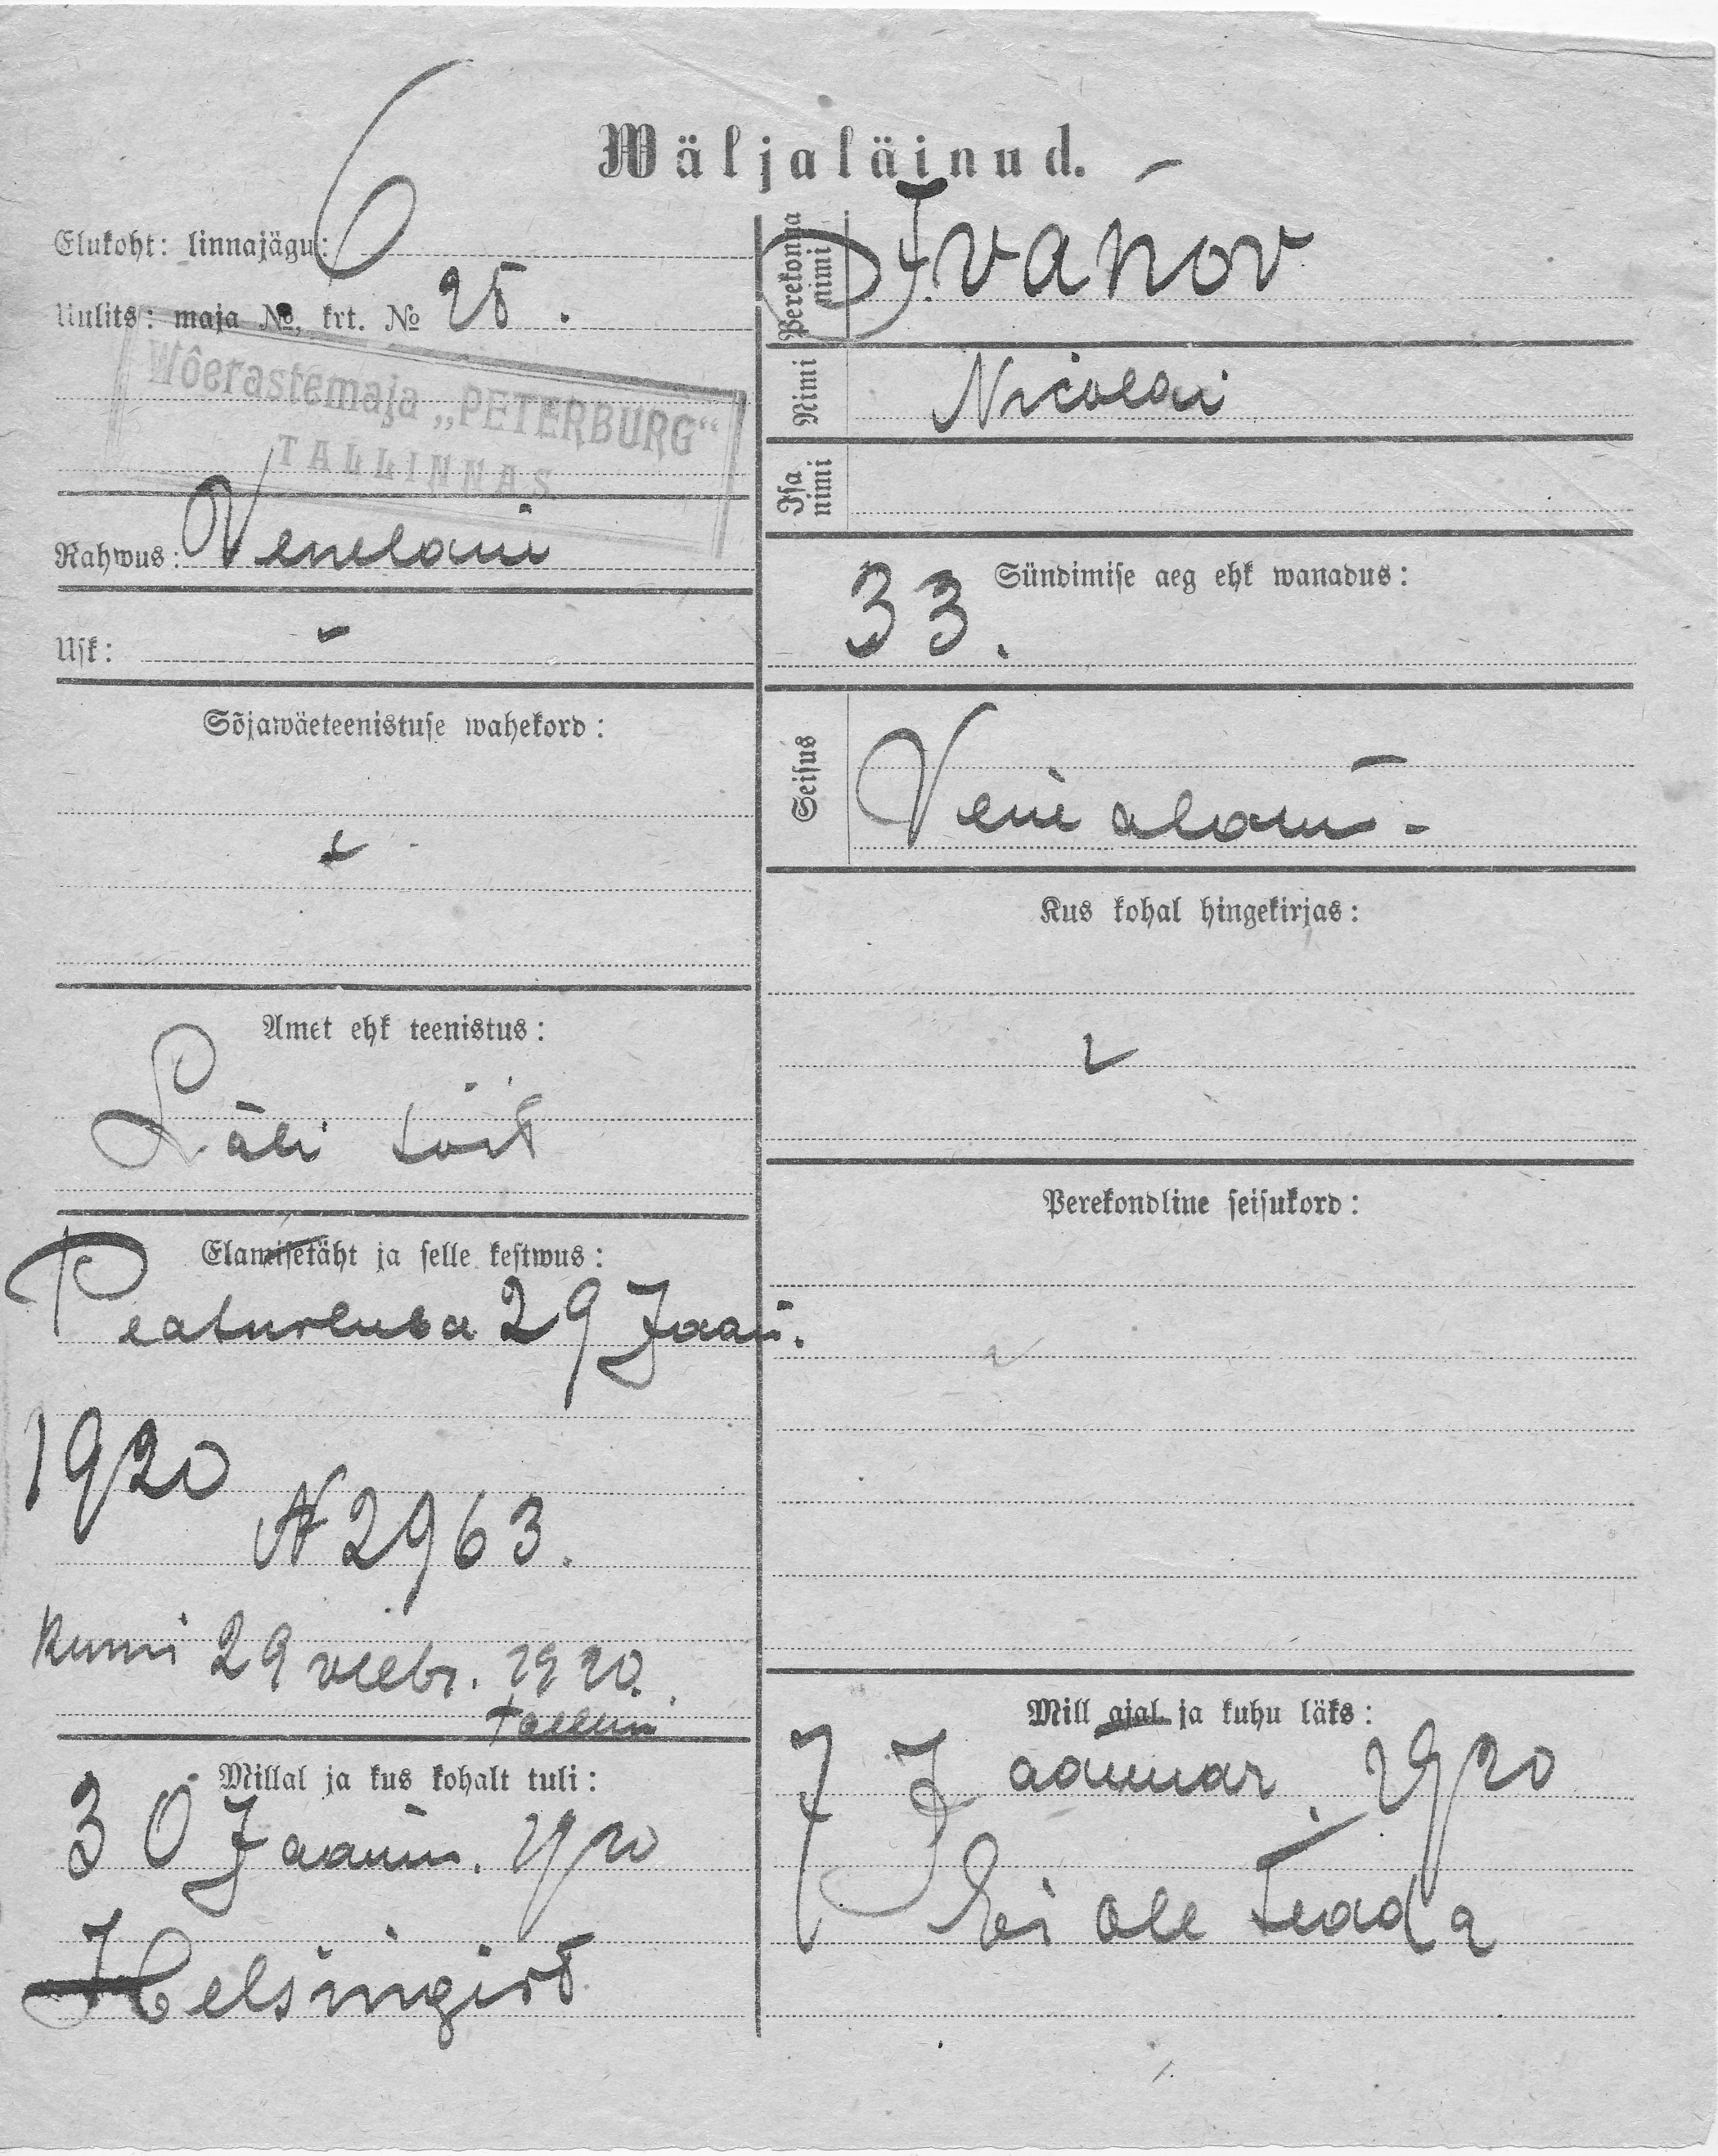 Wäljaläinud.
Elukoht: linnajägu: 6
Uulits: maja №, krt. № 25.
Wôerastemaja „PETERBURG“
TALLINNAS
Rahwus: Venelane
Usk: -
Sõjawäeteenistuse wahekord:
Amet ehk teenistus:
Läbi sõit
Elamisetäht ja selle kestwus:
Peatusluba 29 Jaan.
1920
N 2963.
Kunni 29 veebr. 1920.
Tallinn
Millal ja kus kohalt tuli:
30 Jaanu. 1920
Helsingist
Perekonna nimi Ivanov
Nimi Nicolai
Isa nimi
Sündimise aeg ehk wanadus:
33.
Seisus Vene alam -
Kus kohal hingekirjas:
Perekondline seisukord:
Mill ajal ja kuhu läks:
7 Jaanuar. 1920
Ei ole teada